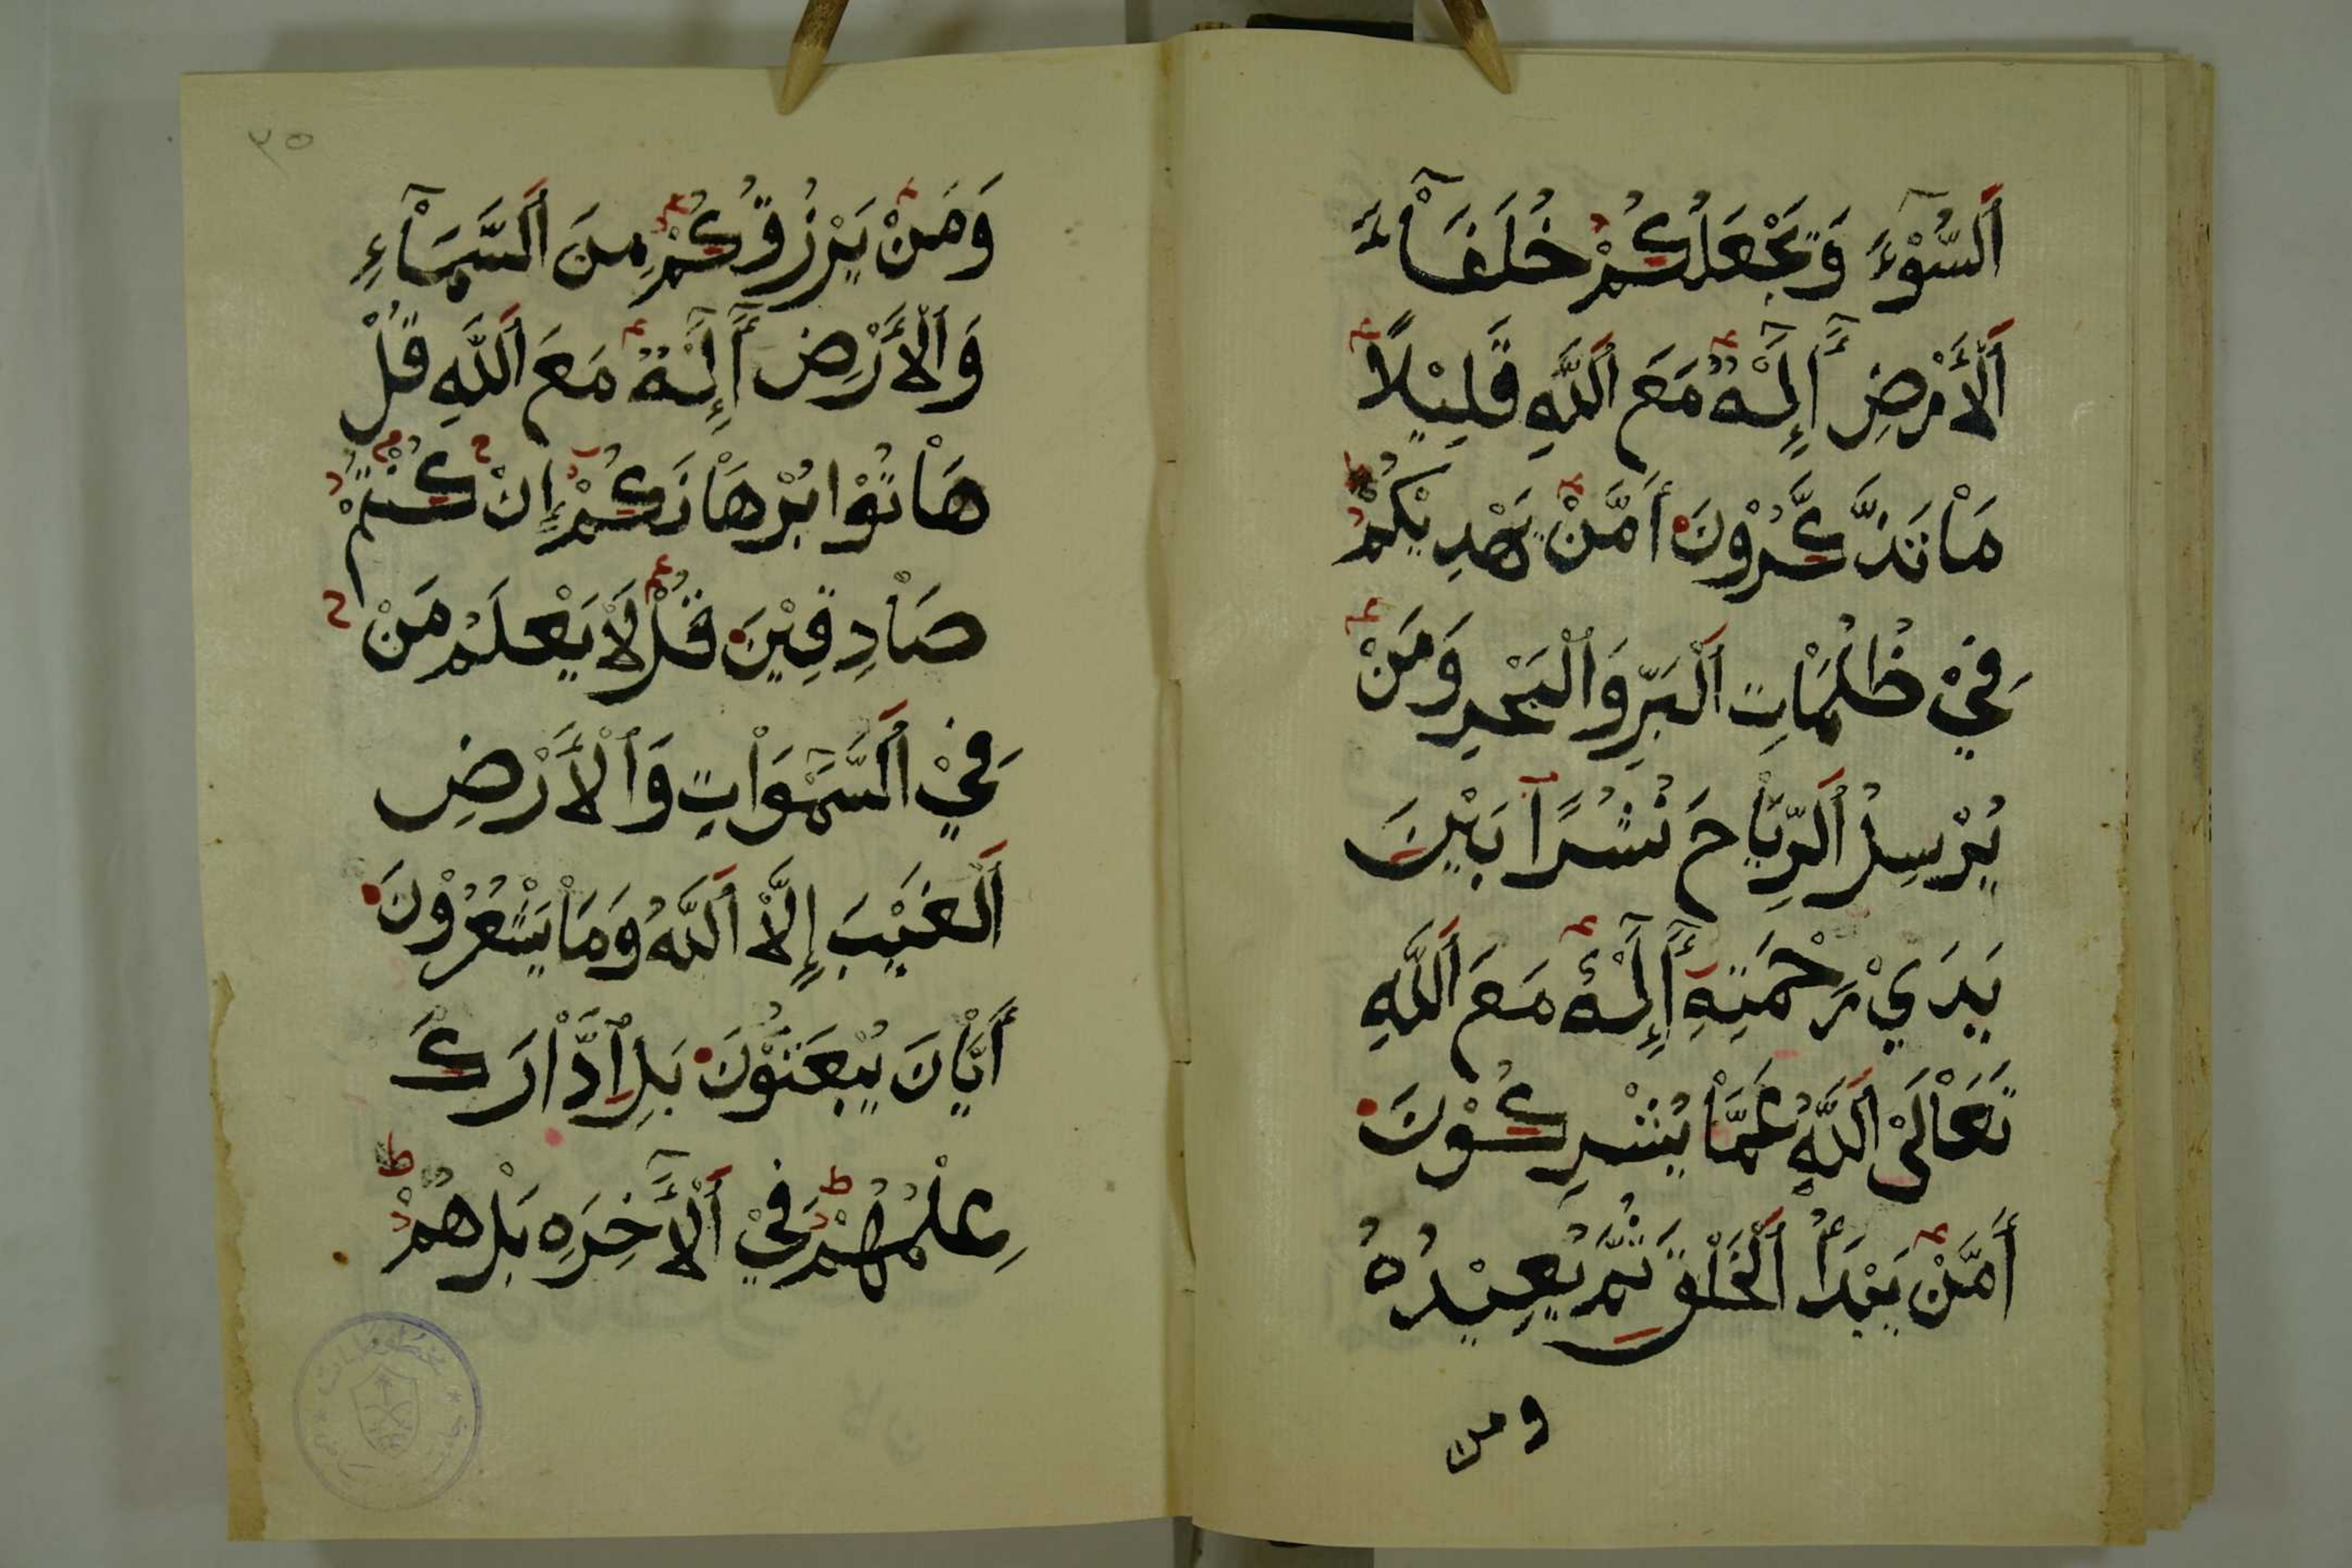 اَلسُّوْءَ وَيَجْعَلُكُمْ خُلَفَآءَ
اَلْأَرْضِ أَإِلٰهٌ مَعَ اَللَّهِ قَلِيْلًا
مَاْ تَذَّكَّرُوْنَ أَمَّنْ يَهْدِيْكُمْ
فِيْ ظُلُمَاْتِ اَلْبَرِّ وَاَلْبَحْرِ وَمَنْ
يُرْسِلُ اَلرِّيَاْحَ نُشُرًا بَيْنَ
يَدَيْ رَحْمَتِهِ أَإِلٰهٌ مَعَ اَللَّهِ
تَعَاْلَىْ اَللَّهُ عَمَّاْ يُشْرِكُوْنَ
أَمَّنْ يَبْدَأُ اَلْخَلْقَ ثُمَّ يُعِيْدُهُ
ومن
٣٥
وَمَنْ يَرْزُقُكُمْ مِنَ اَلسَّمَآءِ
وَاَلْأَرْضِ أَإِلٰهٌ مَعَ اَللَّهِ قُلْ
هَاْتُوْا بُرْهَاْنَكُمْ إِنْ كُنْتُمْ
صَاْدِقِيْنَ قُلْ لَاْ يَعْلَمُ مَنْ
فِيْ اَلسَّمٰوَاْتِ وَاَلْأَرْضِ
اَلْغَيْبَ إِلَّاْ اَللَّهُ وَمَاْ يَشْعُرُوْنَ
أَيَّاْنَ يُبْعَثُوْنَ بَلِ اِدَّاْرَكَ
عِلْمُهُمْ فِيْ اَلْأَخِرَهِ بَلْ هُمْ